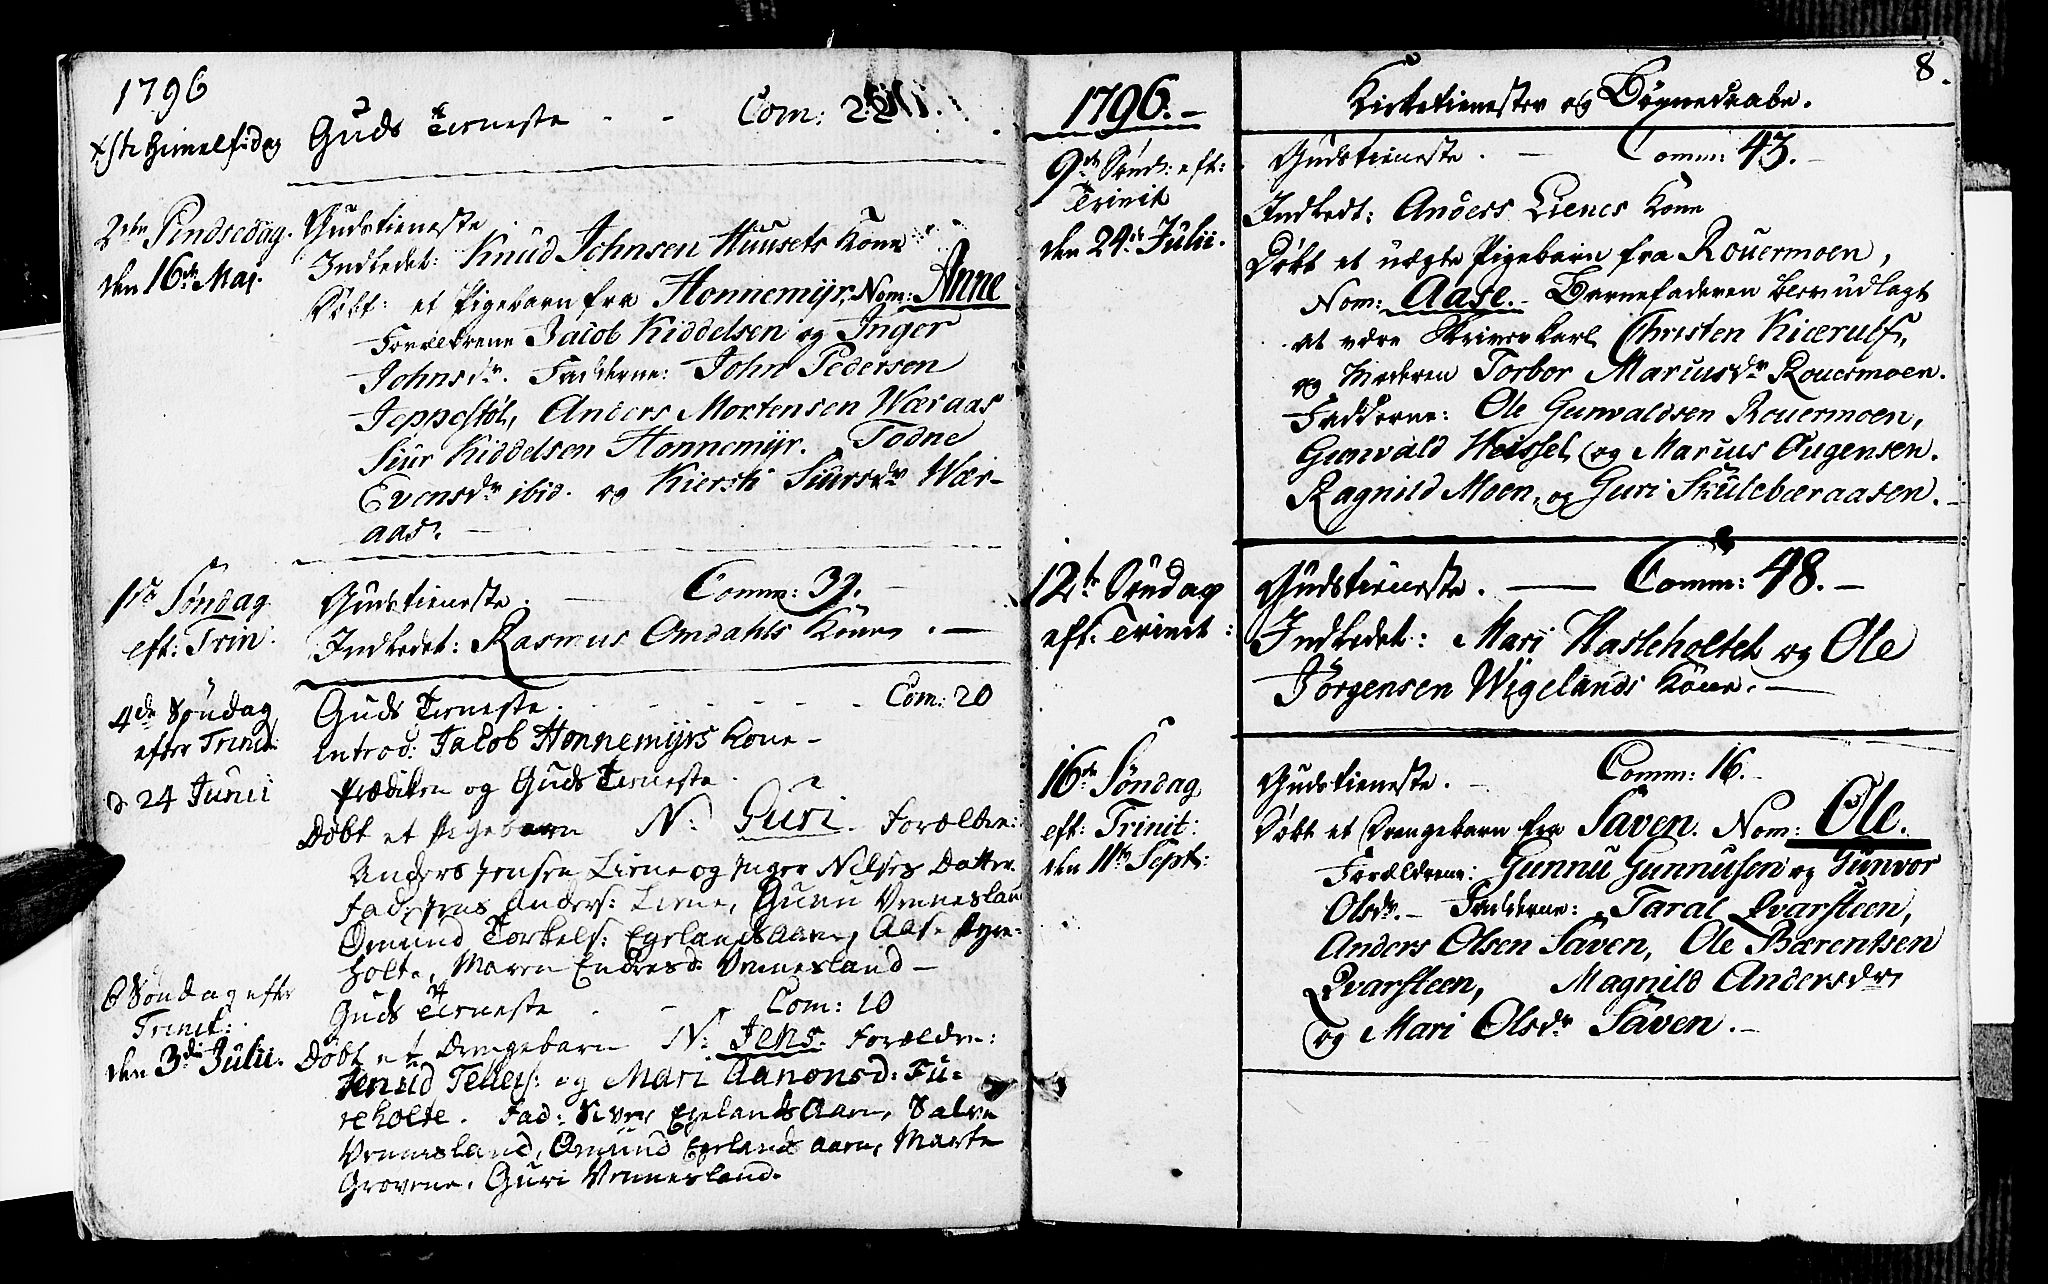 1796
Guds Tieneste - - Com: 22
2den Pindsedag.
den 16de Maj.
Gudstieneste
Indledet: Knud Johnsen Huusets Kone
Døbt: et Pigebarn fra Honnemÿr, Nom: Anne
Forældrene Jacob Kiddelsen og Inger
Johnsdr. Fadderne: John Pedersen
Jeppestøl, Anders Mortensen Wæraas
Siur Kiddelsen Honnemÿr. Todne
Evensdr ibid. og Kiersti Siursdr Wær-
aas. -
1ste Søndag
eft: Trin:
Gudstieneste. - Comm: 39. -
Indledet: Rasmus Omdahls Kone. -
4de Søndag
efter Trinit:
Guds Tieneste. - - - - Com: 20
Introd: Jacob Honnemÿrs Kone -
d 24 Junii
Prædiken og Guds Tieneste.
Døbt et Pigebarn N: Guri. Forældre:
Anders Jensen Liene og Inger Nilses Datter.
Fad: Jens Anders: Liene, Gunu Venneslan
Omund Torkels: Egelandsaan, Aase
holte, Maren Endresd: Vennesland -
6 Søndag efter
Trinit:
den 3die Julii.
Guds Tieneste - - Com: 10
Døbt et Drengebarn N: Jens. Forældre:
Tellefs: og Mari Aanonsd: Fu-
reholte. Fad: Siver Egelandsaan, Salve
Vennesland, Omund Egelandsaan, Marte
Grovene, Guri Vennesland.
8.
1796. -
Kirketienester og Børnedaabe.
9de Sønd: eft:
Trinit
den 24de Julii.
Gudstieneste. - Comm: 43. -
Indledt: Anders Lienes Kone
Døbt et uægte Pigebarn fra Rouermoen,
Nom: Aase. - Barnefaderen blev udlagt
at være Skriverkarl Christen Kierulf,
og Moderen Torbor Mariusdr Rouermoen.
Fadderne: Ole Gunvaldsen Rouermoen,
Gunvald Heissel, og Marius Augensen.
Ragnild Moen, og Guri Skulebæraasen. -
12te Søndag
eft: Trinit:
Gudstieneste. - Comm: 48. -
Indledet: Mari Hasleholtet og Ole
Jørgensen Wigelands Kone. -
16de Søndag
eft: Trinit:
den 11te Sept:
Gudstieneste. - Comm: 16. -
Døbt et Drengebarn fra Saven. Nom: Ole.
Forældrene: Gunnu Gunnusen og Gunvor
Olsdr. - Fadderne: Taral Qvarsteen,
Anders Olsen Saven, Ole Bærentsen
Qvarsteen, Magnild Andersdr,
og Mari Olsdr Saven. -